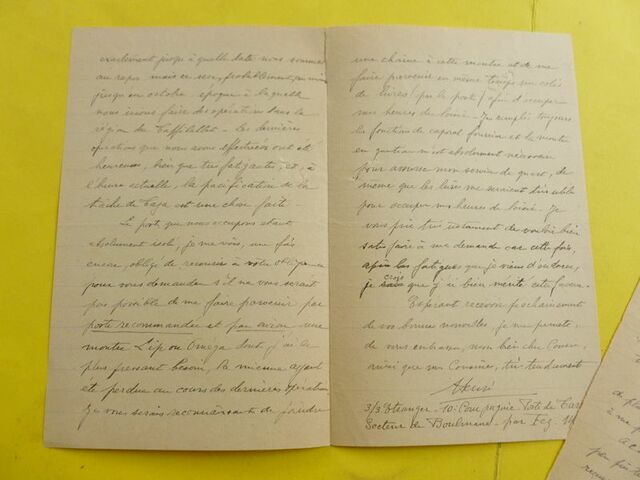 exactement jusqu'à quelle date nous sommes
au repos mais ce sera probablement, au moins
jusqu'en octobre époque à laquelle
nous irons faire des opérations dans la
région du Taffilallet. Les dernières
opérations que nous avons effectuées ont été
heureuses, bien que très fatigantes, et, à
l'heure actuelle, la pacification de la
tâche de Taza est une chose faite.
Le poste que nous occupons étant
absolument isolé, je me vois, une fois
encore, obligé de recourir à votre obligeance
pour vous demander s'il ne vous serait
pas possible de me faire parvenir par
poste recommandée et par avion une
montre Lip ou Omega dont j'ai le
plus pressant besoin, la mienne ayant
été perdue au cours des dernières opérations
Je vous serais reconnaissant de joindre
une chaîne à cette montre et de me
faire parvenir en même temps un colis
de livres (par la poste) afin d'occuper
mes heures de loisir. Je remplis toujours
la fonction de caporal fourrier et la montre
en question m'est absolument nécessaire
pour assurer mon service de quart, de
même que les livres me seraient
pour occuper mes heures de loisir. Je
vous prie très instamment de vouloir bien
satisfaire à ma demande car cette fois,
après les fatigues que je viens d'endurer,
je crois que j'ai bien mérité cette faveur.
Espérant recevoir prochainement
de vos bonnes nouvelles, je me permets,
de vous embrasser, mon bien cher Cousin,
ainsi que ma Cousine, très tendrement
3/3 Etranger - 10e Compagnie Poste de
Secteur de Boulmane - par Fez